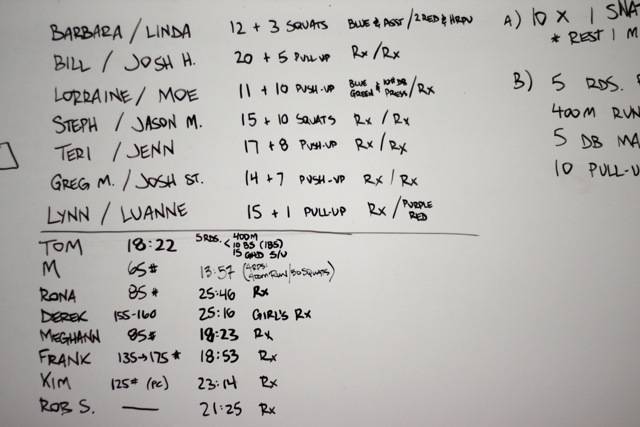 BARBARA / LINDA 12 + 3 SQUATS BLUE & ASST / 2 RED & HRPU
BILL / JOSH H. 20 + 5 PULL UP Rx / Rx
LORRAINE / MOE 11 + 10 PUSH-UP BLUE GREEN & 10# DB PRESS / Rx
STEPH / JASON M. 15 + 10 SQUATS Rx / Rx
TERI / JENN 17 + 8 PUSH-UP Rx / Rx
GREG M. / JOSH ST. 14 + 7 PUSH-UP Rx / Rx
LYNN / LUANNE 15 + 1 PULL-UP Rx / PURPLE RED
TOM 18:22 5 RDS. < 400M 10 BS (185) 15 GHD S/U
M 65# 13:57 (4 RDS: 400M RUN / 50 SQUATS)
RONA 85# 25:46 Rx
DEREK 155-160 25:16 GIRL'S Rx
MEGHANN 85# 18:23 Rx
FRANK 135→175# 18:53 Rx
KIM 125# (PC) 23:14 Rx
ROB S. — 21:25 Rx
A) 10 X 1 SNA
* REST 1 M
B) 5 RDS.
400M RUN
5 DB MA
10 PULL-U